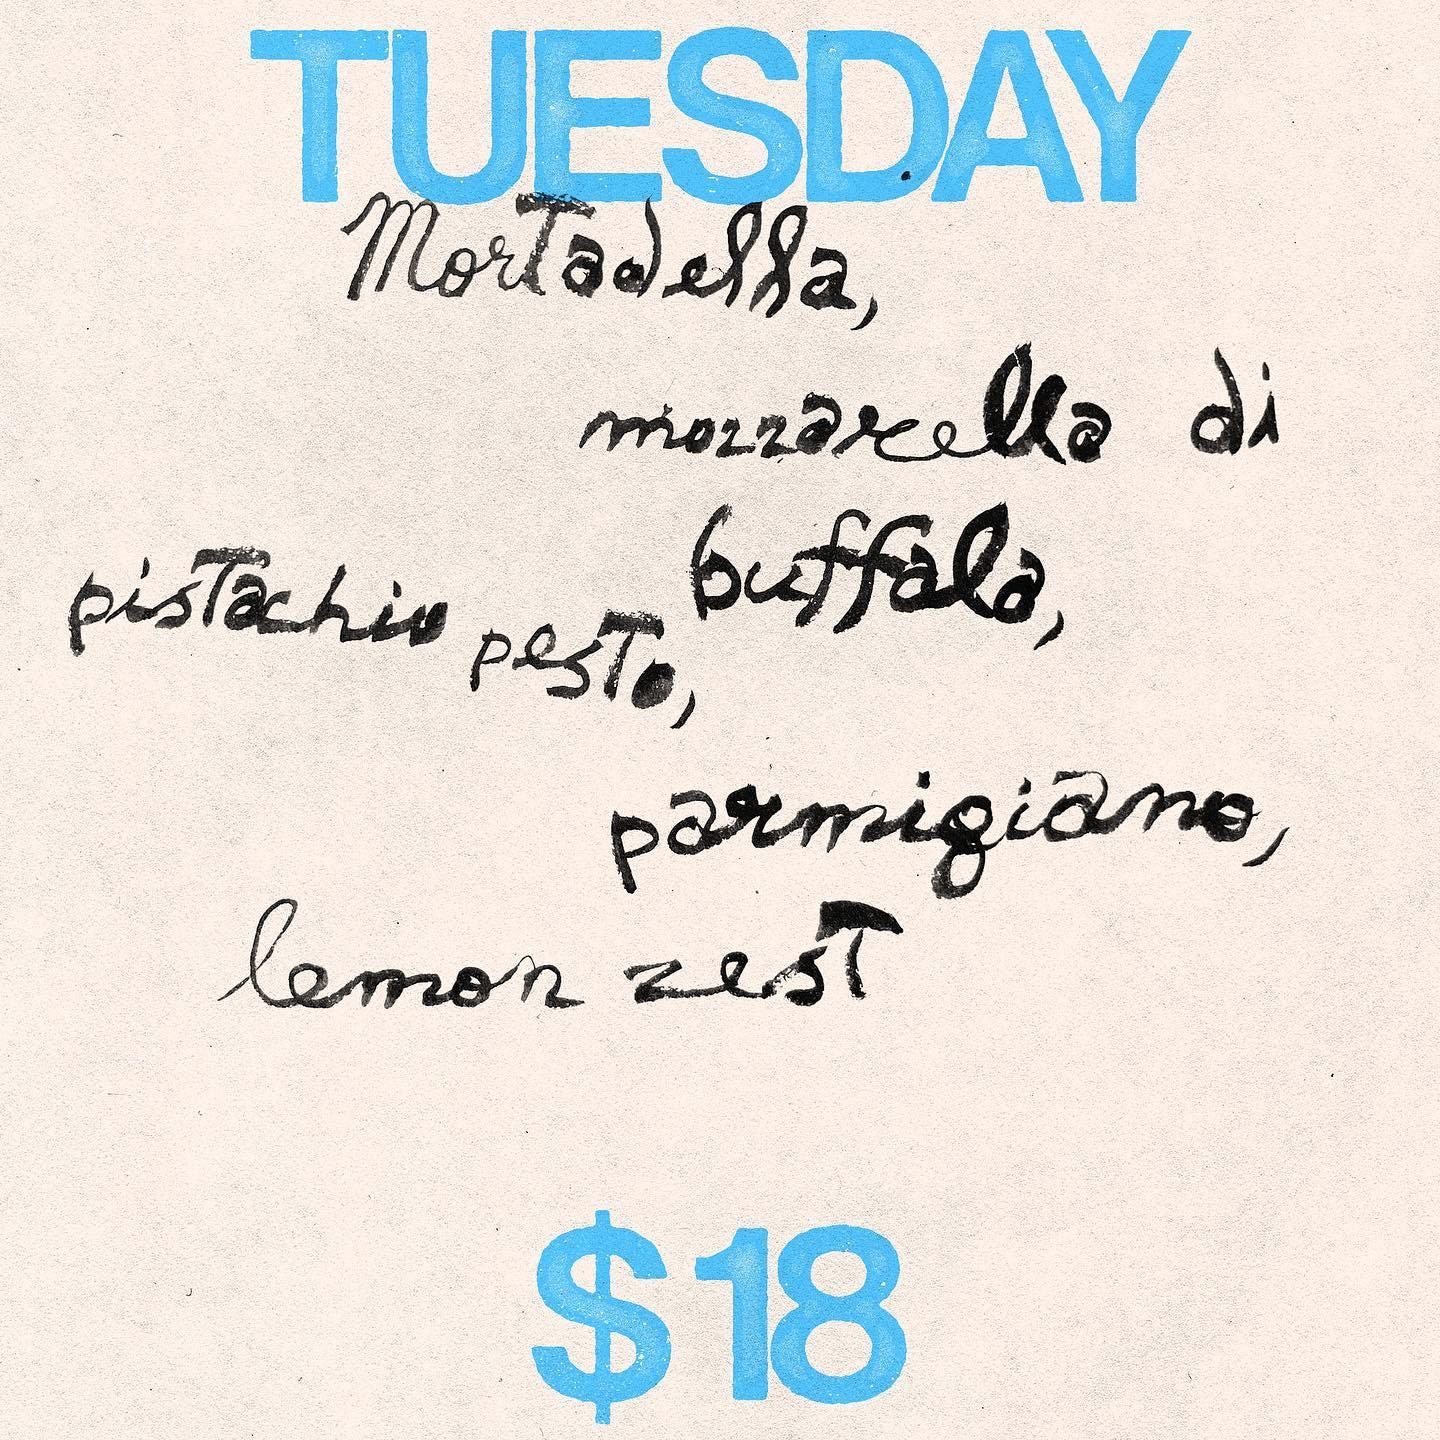 TUESDAY
Mortadella,
mozzarella di
buffala,
pistachio pesto,
parmigiano,
lemon zest
$18